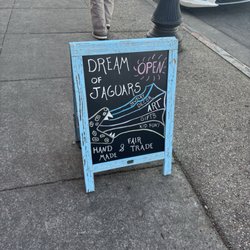 DREAM
OF
JAGUARS
OPEN
ART
GIFTS
HAND & FAIR
MADE TRADE